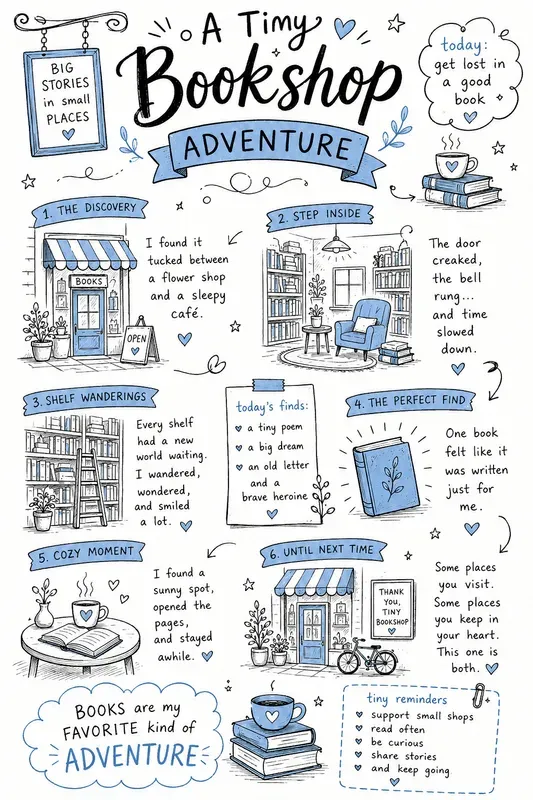 BIG
STORIES
in small
PLACES
A Timy
Bookshop
ADVENTURE
today:
get lost in
a good
book
1. THE DISCOVERY
BOOKS
OPEN
I found it
tucked between
a flower shop
and a sleepy
café.
2. STEP INSIDE
The door
creaked,
the bell
rung...
and time
slowed
down.
3. SHELF WANDERINGS
Every shelf
had a new
world waiting.
I wandered,
wondered,
and smiled
a lot.
today's finds:
a tiny poem
a big dream
an old letter
and a
brave heroine
4. THE PERFECT FIND
One book
felt like it
was written
just for
me.
5. COZY MOMENT
I found a
sunny spot,
opened the
pages,
and stayed
awhile.
6. UNTIL NEXT TIME
THANK
YOU,
TINY
BOOKSHOP
Some places
you visit.
Some places
you keep in
your heart.
This one is
both.
BOOKS are my
FAVORITE kind of
ADVENTURE
tiny reminders
support small shops
read often
be curious
share stories
and keep going